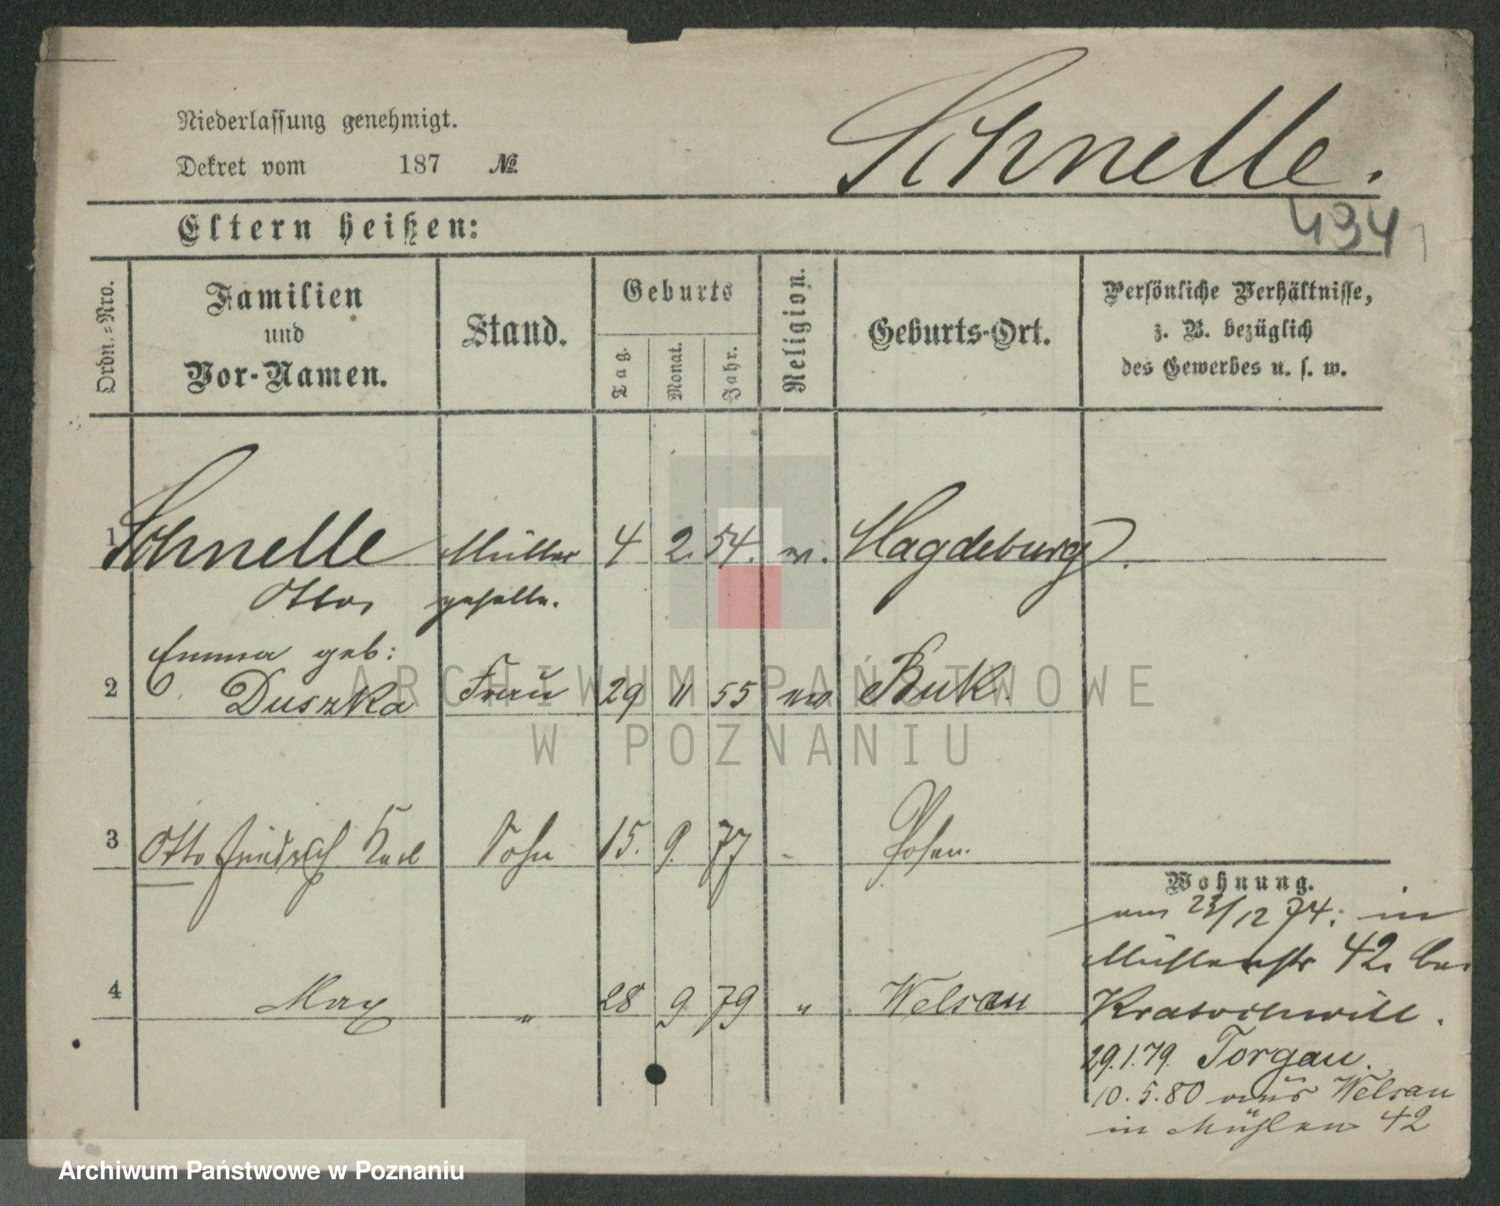 Niederlassung genehmigt.
Dekret vom 187 №
Schnelle.
Eltern heißen:
494
Ordn.-Nro.
Familien
und
Vor-Namen.
Stand.
Geburts
Tag.
Monat.
Jahr.
Religion.
Geburts-Ort.
Persönliche Verhältnisse,
z. B. bezüglich
des Gewerbes u. s. w.
1 Schnelle Müller 4 2. 54. ev. Magdeburg.
Otto geselle.
Emma geb:
2 Duszka Frau 29 11 55 ev Buk.
3 Otto Friedrich Karl Sohn 15. 9. 77 Posen.
4 Max " 28 9 79 " Welsau
Wohnung.
am 23/12 74. in
Mühlenstr 42. bei
Kratochwill.
29.1.79. Torgau.
10.5.80 aus Welsau
in Mühlen 42
ARCHIWUM PAŃSTWOWE
W POZNANIU
Archiwum Państwowe w Poznaniu